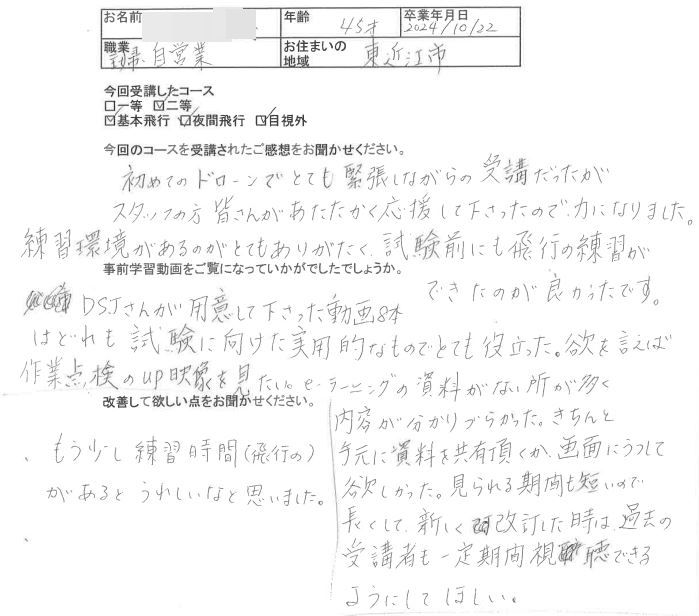 お名前 年齢 45才 卒業年月日 2024/10/22
職業 自営業 お住まいの地域 東近江市
今回受講したコース
□一等 ☑二等
☑基本飛行 ☑夜間飛行 ☑目視外
今回のコースを受講されたご感想をお聞かせください。
初めてのドローンでとても緊張しながらの受講だったが
スタッフの方皆さんがあたたかく応援して下さったので、力になりました。
練習環境があるのがとてもありがたく、試験前にも飛行の練習が
できたのが良かったです。
事前学習動画をご覧になっていかがでしたでしょうか。
DSJさんが用意して下さった動画8本
はどれも試験に向けた実用的なものでとても役立った。欲を言えば
作業点検のup映像を見たい。e-ラーニングの資料がない所が多く
内容が分かりづらかった。きちんと
手元に資料を共有頂くか、画面にうつして
欲しかった。見られる期間も短いので
長くして、新しく改訂した時は、過去の
受講者も一定期間視聴できる
ようにしてほしい。
改善して欲しい点をお聞かせください。
もう少し練習時間(飛行の)
があるとうれしいなと思いました。